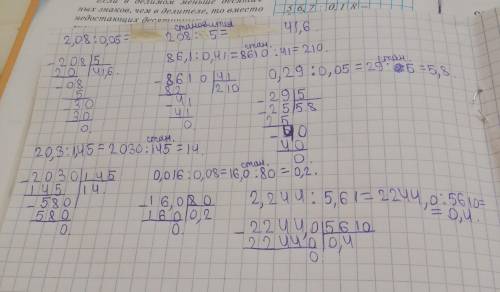 если в делимом меньше десятич-
ных знаков, чем в делителе, то вместо
недостающих десятичных
5 6 7 0, 1 8
становится
2,08:0,05= 208:5= 41,6
208 5
20 41,6
08
5
30
30
0.
стан.
861:0,41=8610:41=210.
8610 41
82 210
41
41
0
стан.
0,29:0,05=29:5=5,8.
29 5
25 5 8
25
40
40
0.
стан.
20,3:1,45=2030:145=14.
2030 145
145 14.
580
580
0.
стан.
0,016:0,08=16,0:80=0,2.
160 80
160 0,2
0.
2,244:5,61=2244,0:5610=
=0,4.
22440 5610
22440 0,4
0